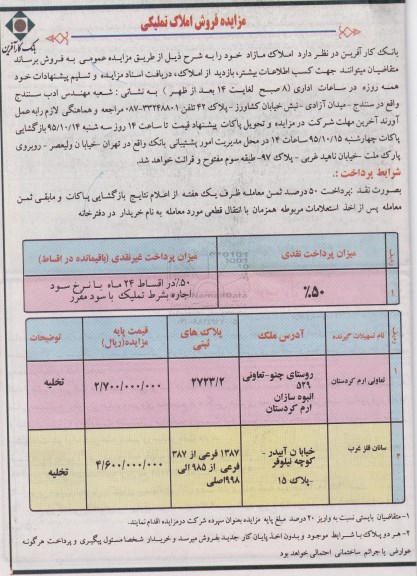 مزایده فروش املاک تملیکی
بانک کارآفرین
بانک کار آفرین در نظر دارد املاک مازاد خود را به شرح ذیل از طریق مزایده عمومی به فروش برساند
متقاضیان میتوانند جهت کسب اطلاعات بیشتر، بازدید از املاک، دریافت اسناد مزایده و تسلیم پیشنهادات خود
همه روزه در ساعات اداری (۸ صبح لغایت ۱۴ بعد از ظهر) به نشانی : شعبه مهندس ادب سنندج
واقع در سنندج - میدان آزادی - نبش خیابان کشاورز - پلاک ۴۲ تلفن ۳۳۲۴۸۸۰۱-۰۸۷ مراجعه و هماهنگی لازم رابه عمل
آورند آخرین مهلت شرکت در مزایده و تحویل پاکات پیشنهاد قیمت تا ساعت ۱۴ روز سه شنبه ۹۵/۱۰/۱۴ بازگشایی
پاکات چهارشنبه ۹۵/۱۰/۱۵ ساعات ۱۴ در محل مدیریت امور پشتیبانی بانک واقع در تهران -خیابان ولیعصر - روبروی
پارک ملت -خیابان ناهید غربی - پلاک ۹۷- طبقه سوم مفتوح و قرائت خواهد شد.
شرایط پرداخت :
بصورت نقد :پرداخت ۵۰ درصد ثمن معامله ظرف یک هفته از اعلام نتایج بازگشایی پاکات و مابقی ثمن
معامله پس از اخذ استعلامات مربوطه همزمان با انتقال قطعی مورد معامله به نام خریدار در دفترخانه
ردیف میزان پرداخت نقدی میزان پرداخت غیرنقدی (باقیمانده در اقساط)
۱ ۵۰٪ ۵۰٪در اقساط ۲۴ ماه با نرخ سود
اجاره بشرط تملیک با سود مقرر
ردیف نام تسهیلات گیرنده آدرس ملک پلاک های ثبتی قیمت پایه مزایده(ریال) توضیحات
۱ تعاونی ارم کردستان روستای چنو-تعاونی ۵۲۹ انبوه سازان ارم کردستان ۲۷۲۳/۲ ۲/۷۰۰/۰۰۰/۰۰۰ تخلیه
۲ سانان فلز غرب خیابان آبیدر - کوچه نیلوفر -پلاک ۱۵ ۱۳۸۷ فرعی از ۳۸۷ فرعی از ۹۸۵ الی ۹۹۸اصلی ۴/۶۰۰/۰۰۰/۰۰۰ تخلیه
۱-متقاضیان بایستی نسبت به واریز ۲۰ درصد مبلغ پایه مزایده بعنوان سپرده شرکت درمزایده اقدام نمایند.
۲-هر دو پلاک با شرایط موجود و بدون اخذ پایان کار جدید بفروش میرسد و خریدار شخصا مسئول پیگیری و پرداخت هرگونه
عوارض یا جرائم ساختمانی احتمالی خواهد بود